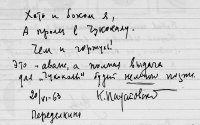 Хоть и боком я,
А пролез в Чукоккалу.
Чем и горжусь!
Это – аванс, а полная выдача
для "Чукоккалы" будет немного позже.
20/VI-63 К. Паустовский
Переделкино